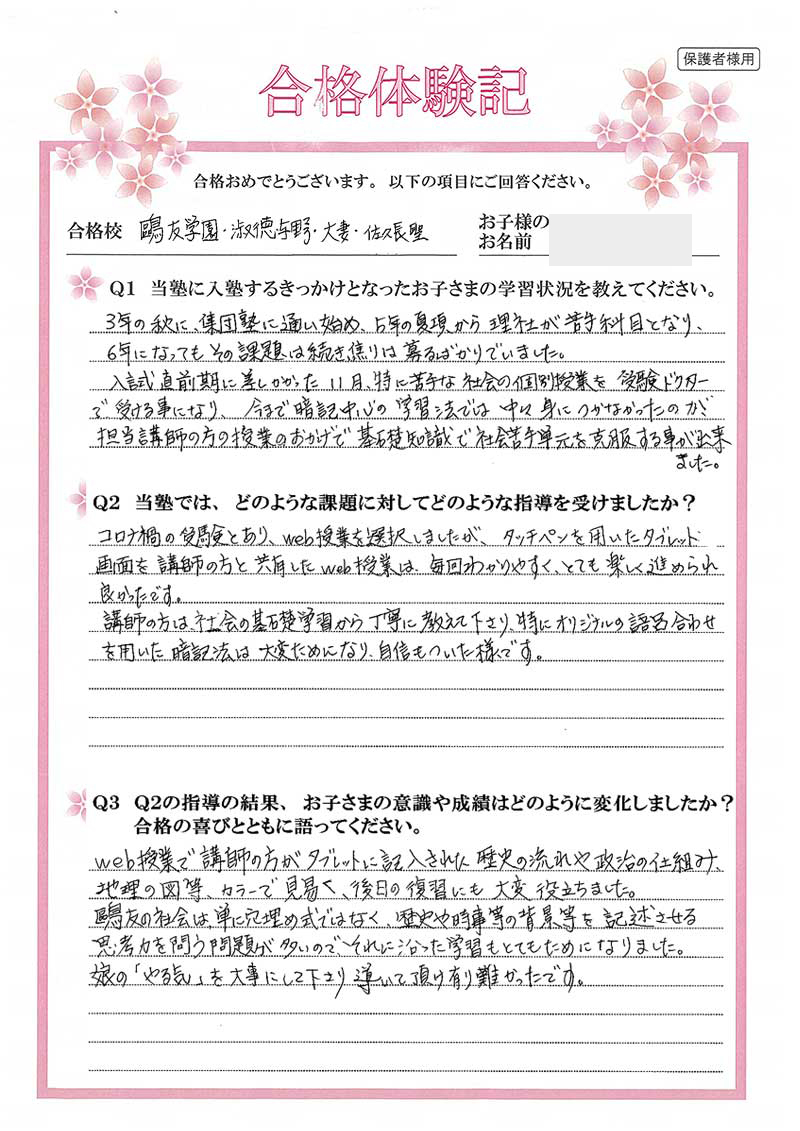 保護者様用
合格体験記
合格おめでとうございます。以下の項目にご回答ください。
合格校 鷗友学園・淑徳与野・大妻・佐久長聖
お子様の
お名前
Q1 当塾に入塾するきっかけとなったお子さまの学習状況を教えてください。
3年の秋に、集団塾に通い始め、5年の夏頃から理社が苦手科目となり、
6年になってもその課題は続き、焦りは募るばかりでいました。
入試直前期に差しかかった11月、特に苦手な社会の個別授業を受験ドクター
で受ける事になり、今まで暗記中心の学習法では中々身につかなかったのが
担当講師の方の授業のおかげで基礎知識で社会苦手単元を克服する事が出来
ました。
Q2 当塾では、どのような課題に対してどのような指導を受けましたか？
コロナ禍の受験とあり、web授業を選択しましたが、タッチペンを用いたタブレット
画面を講師の方と共有したweb授業は、毎回わかりやすく、とても楽しく進められ
良かったです。
講師の方は、社会の基礎学習から丁寧に教えて下さり、特にオリジナルの語呂合わせ
を用いた暗記法は大変ためになり、自信もついた様です。
Q3 Q2の指導の結果、お子さまの意識や成績はどのように変化しましたか？
合格の喜びとともに語ってください。
web授業で講師の方がタブレットに記入された歴史の流れや政治の仕組み、
地理の図等、カラーで見易く、後日の復習にも大変役立ちました。
鷗友の社会は、単に穴埋め式ではなく、歴史や時事等の背景等を記述させる
思考力を問う問題が多いので、それに沿った学習もとてもためになりました。
娘の「やる気」を大事にして下さり導いて頂け有り難かったです。